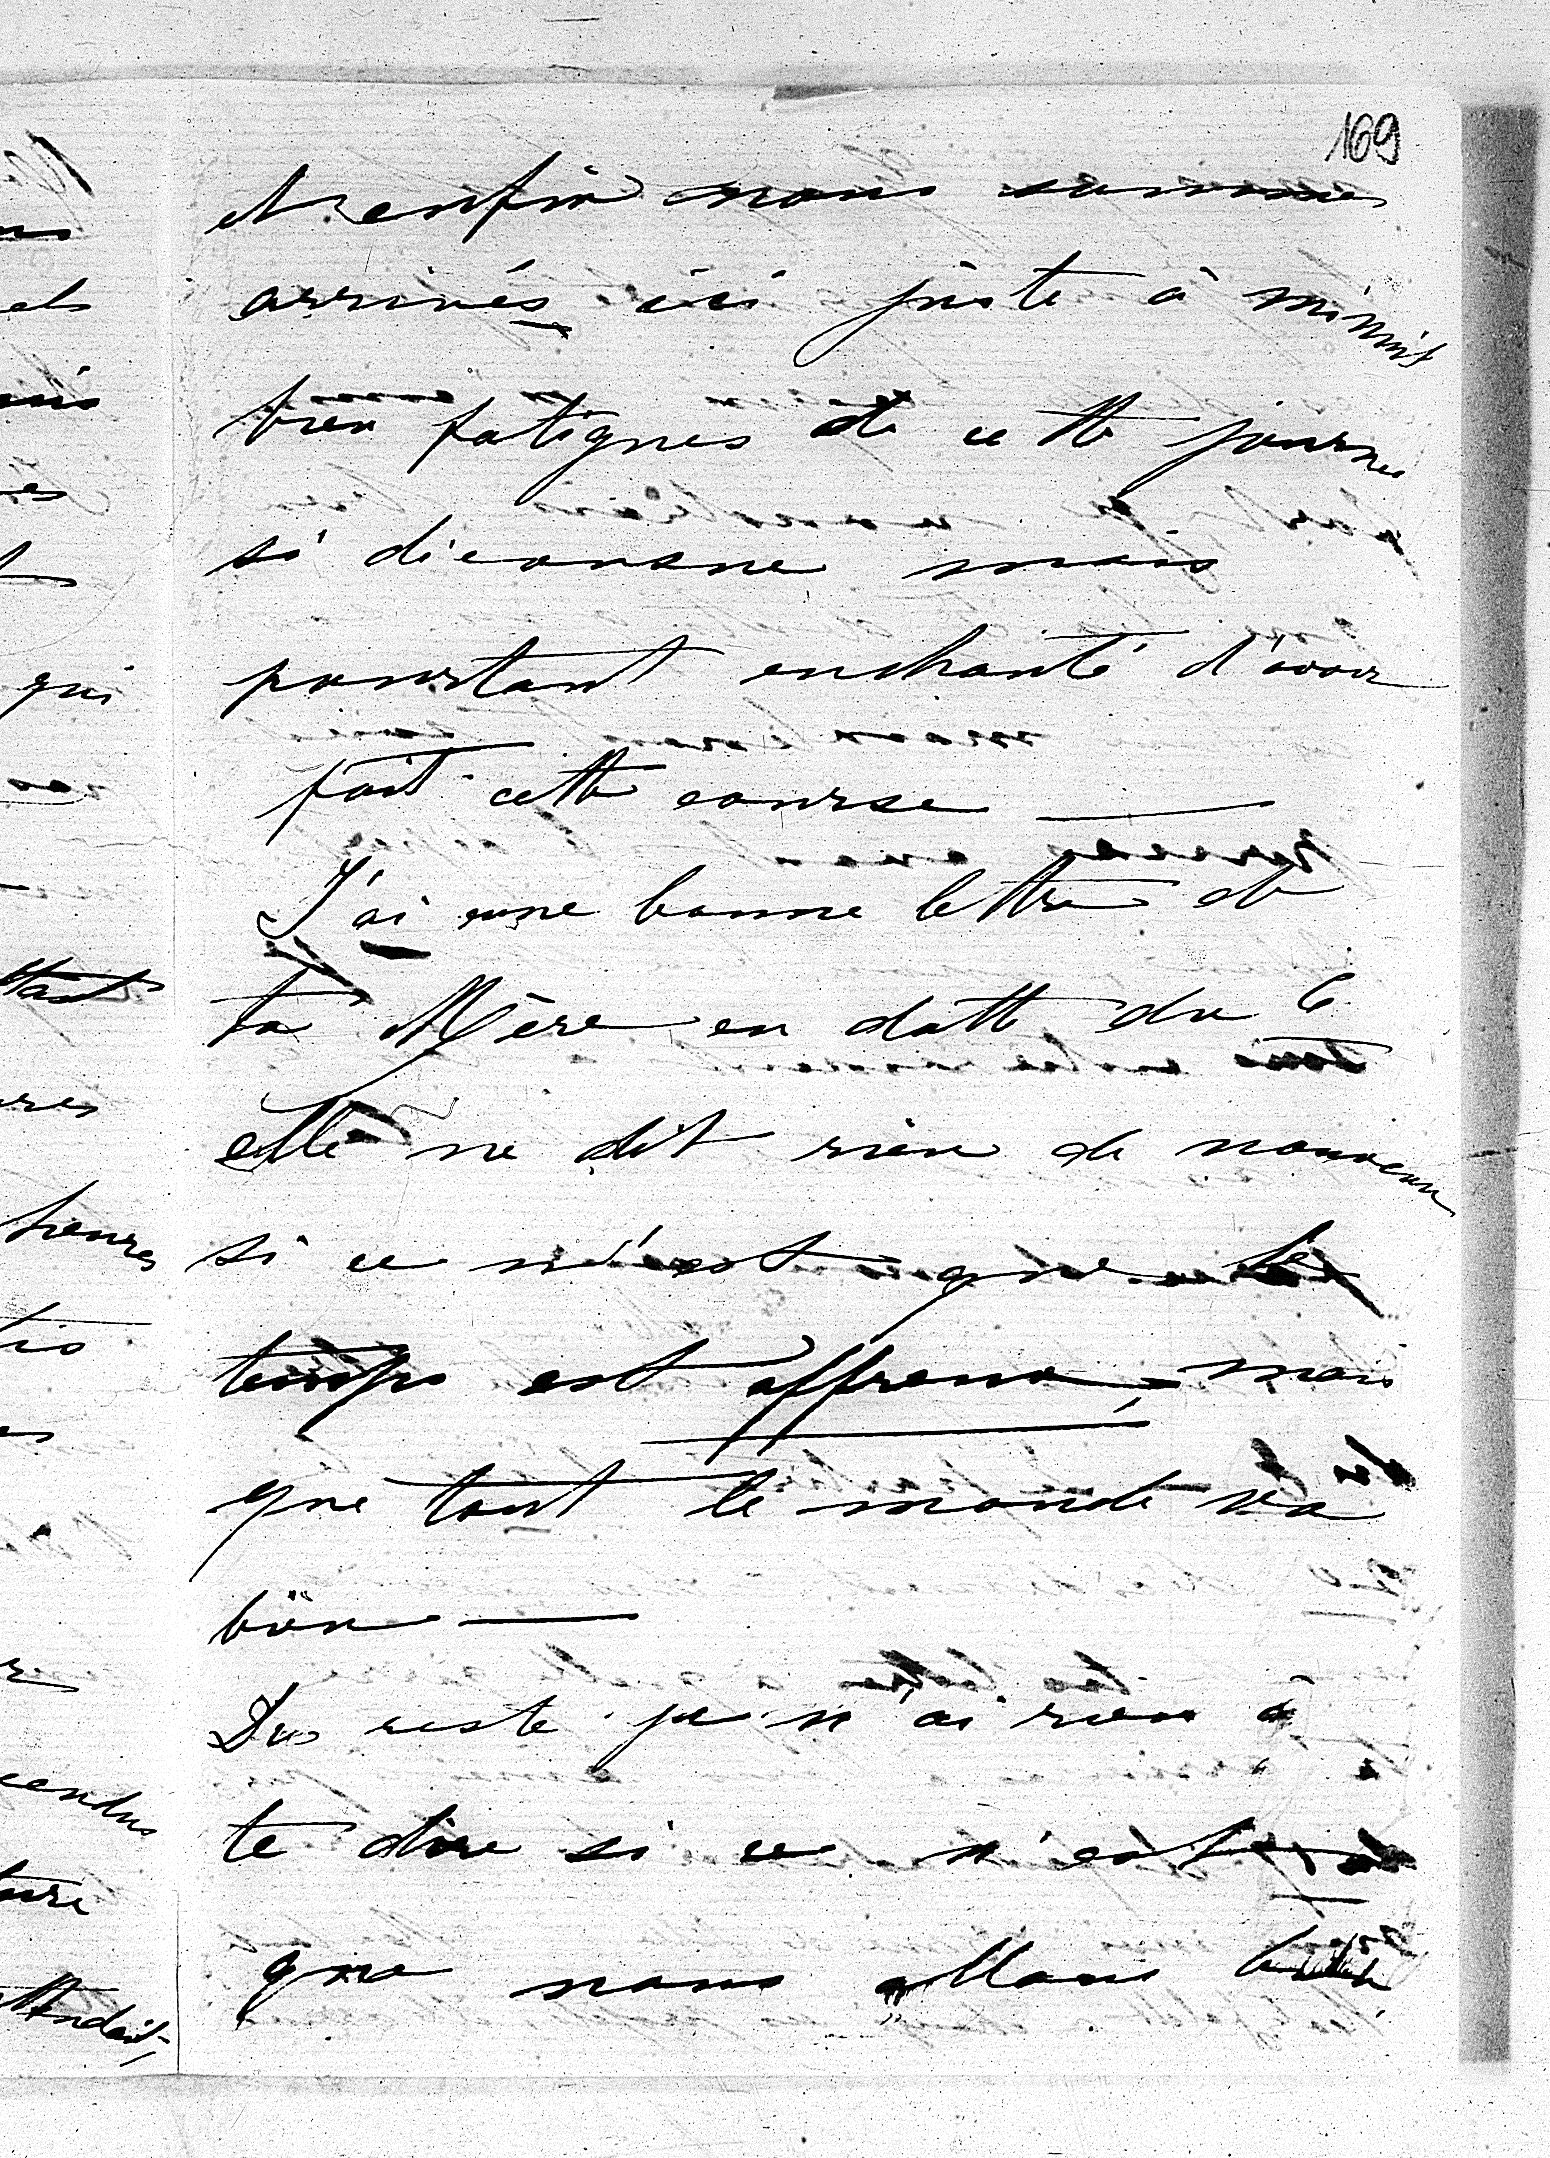 169
et enfin nous sommes
arrivés ici juste à minuit
bien fatigués de cette journée
si décousue mais
pourtant enchanté d'avoir
fait cette course —
J'ai une bonne lettre de
ta Mère en datte du 6
elle ne dit rien de nouveau
si ce n'est que le
temps est affreux mais
que tout le monde va
bien —
Du reste je n'ai rien à
te dire si ce n'est
que nous allons